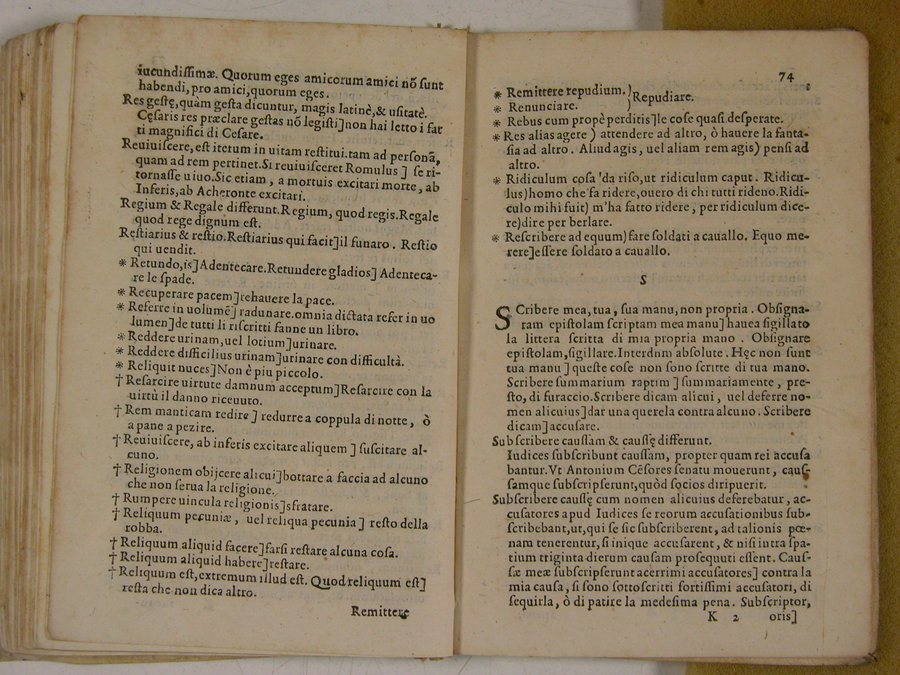 iucundissimæ. Quorum eges amicorum amici nõ sunt
habendi, pro amici, quorum eges.
Res gestę, quàm gesta dicuntur, magis latinè, & usitatè.
Cęsaris res præclare gestas nõ legisti] non hai letto i fat
ti magnifici di Cesare.
Reuiuiscere, est iterum in uitam restitui. tam ad personã,
quam ad rem pertinet. Si reuiuisceret Romulus ] se ri-
tornasse uiuo. Sic etiam, a mortuis excitari morte, ab
Inferis, ab Acheronte excitari.
Regium & Regale differunt. Regium, quod regis. Regale
quod rege dignum est.
Restiarius & restio. Restiarius qui facit] il funaro. Restio
qui uendit.
* Retundo, is] Adentecare. Retundere gladios] Adenteca-
re le spade.
* Recuperare pacem] rehauere la pace.
* Referre in uolumẽ] radunare. omnia dictata refer in uo
lumen] de tutti li riscritti fanne un libro.
* Reddere urinam, uel lotium] urinare.
* Reddere difficilius urinam] urinare con difficultà.
* Reliquit nuces] Non è piu piccolo.
† Resarcire uirtute damnum acceptum] Resarcire con la
uirtù il danno riceuuto.
† Rem manticam redire ] redurre a coppula di notte, ò
a pane a pezire.
† Reuiuiscere, ab inferis excitare aliquem ] suscitare al-
cuno.
† Religionem obijcere alicui] bottare a faccia ad alcuno
che non serua la religione.
† Rumpere uincula religionis] sfratare.
† Reliquum pecuniæ, uel reliqua pecunia ] resto della
robba.
† Reliquum aliquid facere] farsi restare alcuna cosa.
† Reliquum aliquid habere] restare.
† Reliquum est, extremum illud est. Quod reliquum est]
resta che non dica altro.
Remittere
74
* Remittere repudium. )
* Renunciare. ) Repudiare.
* Rebus cum propè perditis] le cose quasi desperate.
* Res alias agere ) attendere ad altro, ò hauere la fanta-
sia ad altro. Aliud agis, uel aliam rem agis) pensi ad
altro.
* Ridiculum cosa 'da riso, ut ridiculum caput. Ridicu-
lus) homo che fa ridere, ouero di chi tutti rideno. Ridi-
culo mihi fuit) m'ha fatto ridere, per ridiculum dice-
re) dire per berlare.
* Rescribere ad equum) fare soldati a cauallo. Equo me-
rere] essere soldato a cauallo.
S
SCribere mea, tua, sua manu, non propria. Obsigna-
ram epistolam scriptam mea manu] hauea sigillato
la littera scritta di mia propria mano. Obsignare
epistolam, sigillare. Interdum absolute. Hęc non sunt
tua manu ] queste cose non sono scritte di tua mano.
Scribere summarium raptim ] summariamente, pre-
sto, di furaccio. Scribere dicam alicui, uel deferre no-
men alicuius] dar una querela contra alcuno. Scribere
dicam] accusare.
Subscribere caussam & caussę differunt.
Iudices subscribunt caussam, propter quam rei accusa
bantur. Vt Antonium Cẽsores senatu mouerunt, caus-
samque subscripserunt, quòd socios diripuerit.
Subscribere caussę cum nomen alicuius deferebatur, ac-
cusatores apud Iudices se reorum accusationibus sub-
scribebant, ut, qui se sic subscriberent, ad talionis pœ-
nam tenerentur, si inique accusarent, & nisi intra spa-
tium triginta dierum causam prosequuti essent. Caus-
sæ meæ subscripserunt acerrimi accusatores] contra la
mia causa, si sono sottoscritti fortissimi accusatori, di
sequirla, ò di patire la medesima pena. Subscriptor,
K 2 oris]